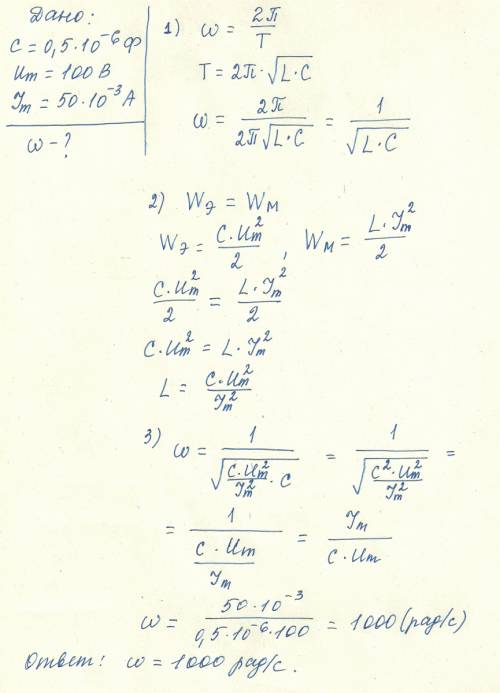 Дано:
C = 0,5·10⁻⁶ Ф
Um = 100 В
Jm = 50·10⁻³ А
ω - ?
1) ω = 2π/T
T = 2π·√(L·C)
ω = 2π/(2π√(L·C)) = 1/√(L·C)
2) Wэ = Wм
Wэ = C·Um²/2, Wм = L·Jm²/2
C·Um²/2 = L·Jm²/2
C·Um² = L·Jm²
L = C·Um²/Jm²
3) ω = 1/√(C·Um²/Jm² · C) = 1/√(C²·Um²/Jm²) =
= 1/(C·Um/Jm) = Jm/(C·Um)
ω = 50·10⁻³/(0,5·10⁻⁶·100) = 1000 (рад/с)
Ответ: ω = 1000 рад/с.